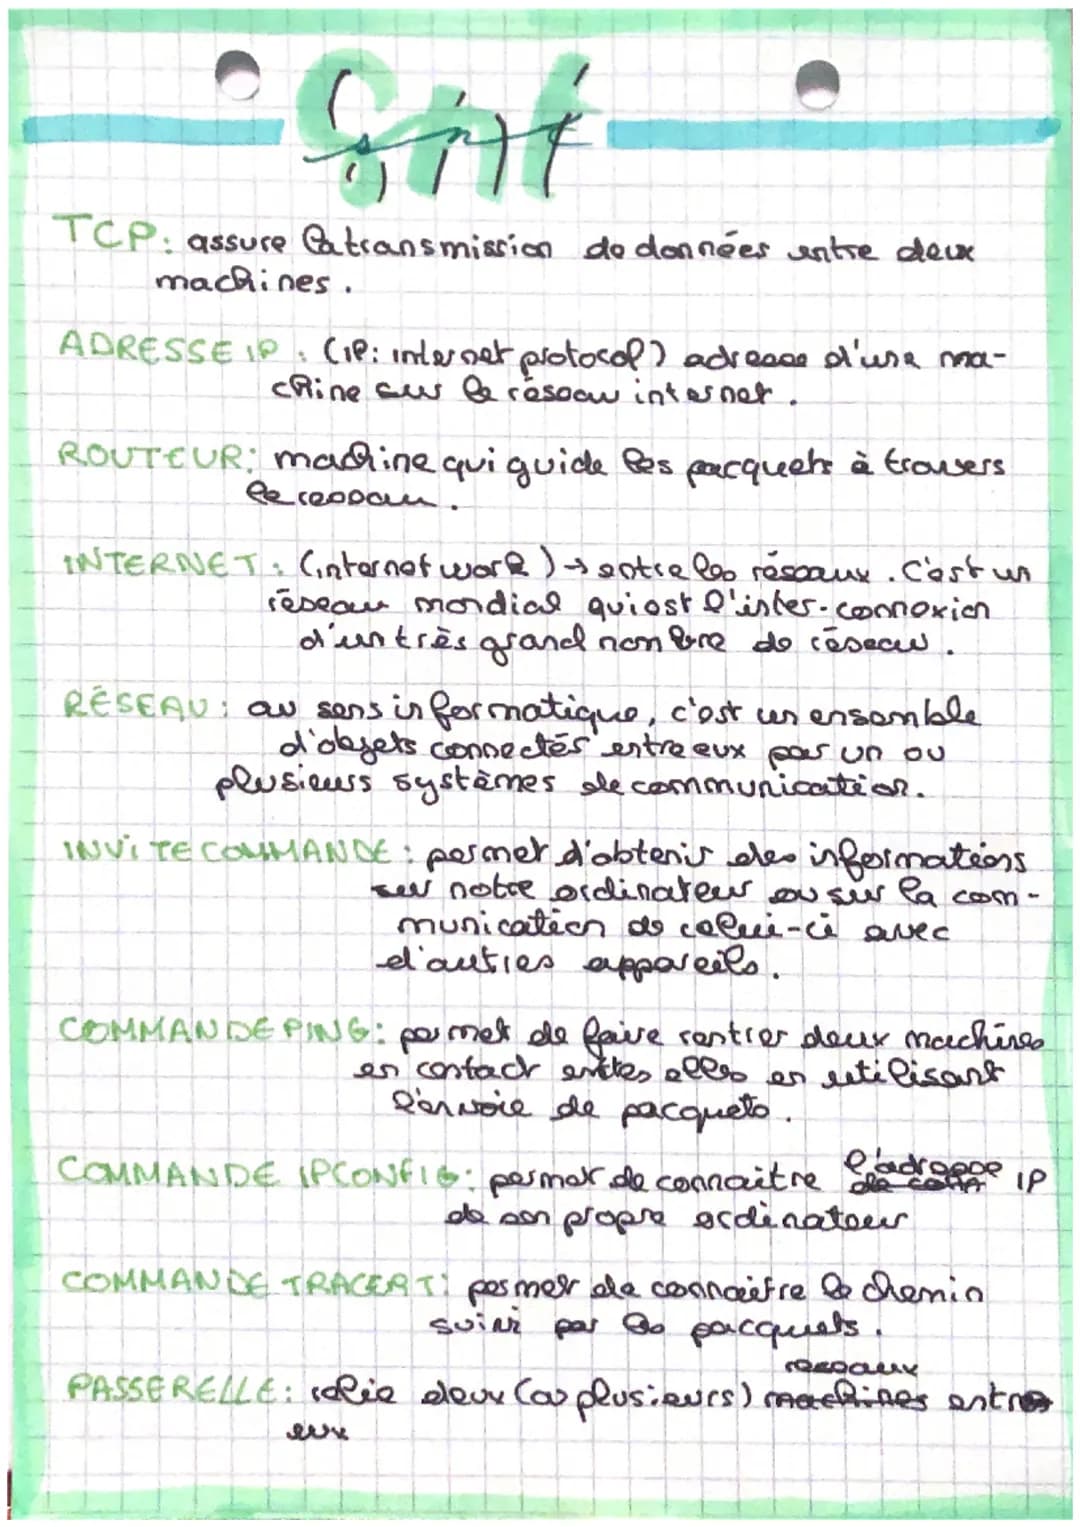 Snt
TCP: assure la transmission de données entre deux
machines.
ADRESSE IP : (IP: internet protocol) adresse d'une ma-
chine sur le réseau internet.
ROUTEUR: machine qui guide les pacquets à travers
le reseau.
INTERNET : (internet work) → entre les réseaux. C'est un
réseau mondial qui est l'inter-connexion
d'un très grand nombre de réseau.
RÉSEAU : au sens informatique, c'est un ensemble
d'objets connectés entre eux par un ou
plusieurs systèmes de communication.
INVITE COMMANDE : permet d'obtenir des informations
sur notre ordinateur ou sur la com-
munication de celui-ci avec
d'autres appareils.
COMMANDE PING: permet de faire rentrer deux machines
en contact entres elles en utilisant
l'envoie de pacquets.
COMMANDE IPCONFIG: permet de connaitre l'adresse IP
de son propre ordinateur
COMMANDE TRACERT: permet de connaître le chemin
suivi par les pacquets.
reseaux
PASSERELLE: relie deux (ou plusieurs) machines entres
eux